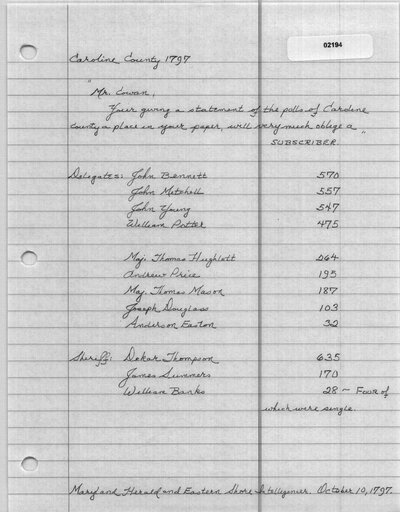 02194
Caroline County 1797
"Mr. Cowan,
Your giving a statement of the polls of Caroline
County a place in your paper, will very much oblige a
SUBSCRIBER."
Delegates: John Bennett 570
John Mitchell 557
John Young 547
William Potter 475
Maj. Thomas Hughlett 264
Andrew Price 195
Maj. Thomas Mason 187
Joseph Douglass 103
Anderson Easton 32
Sheriff: Dekar Thompson 635
James Summers 170
William Banks 28 ~ Four of
which were single.
Maryland Herald and Eastern Shore Intelligencer. October 10, 1797.